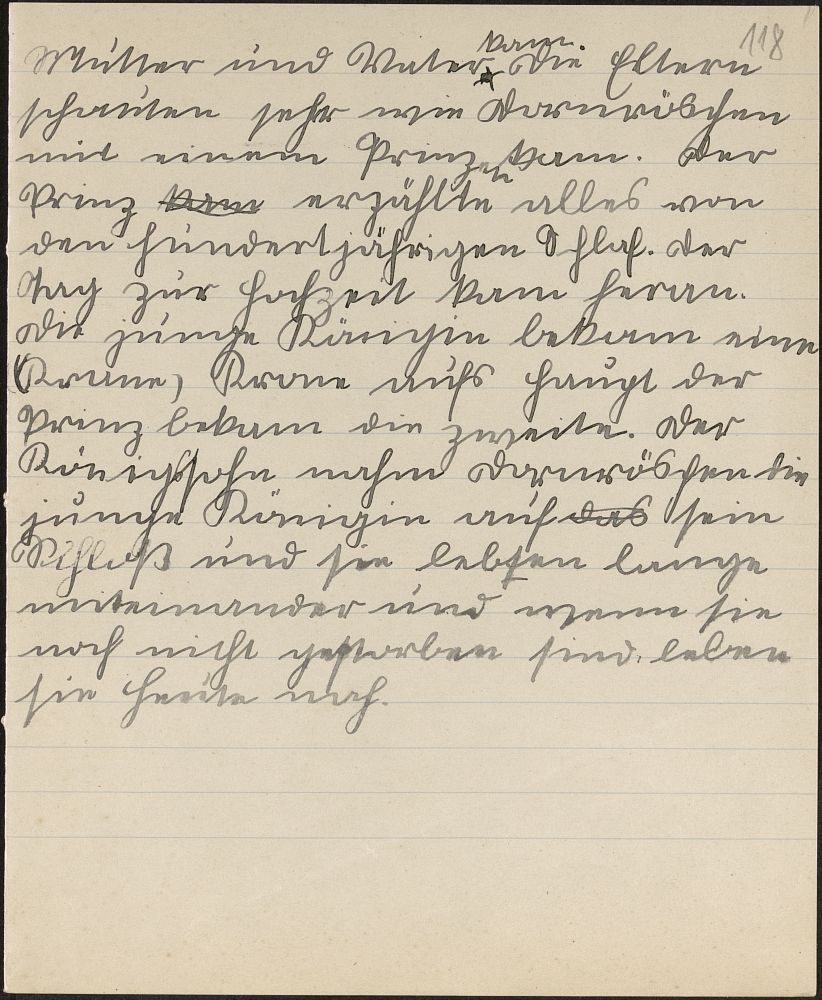 118
Mutter und Vater kam. Die Eltern
schauten sehr wie Dornröschen
mit einem Prinzen kam. Der
Prinz kam erzählte alles von
den hundertjährigen Schlaf. Der
Tag zur Hochzeit kam heran.
Die junge Königin bekam eine
(Krune) Krone aufs Haupt der
Prinz bekam die zweite. Der
Königssohn nahm Dornröschen die
junge Königin auf das sein
Schloß und sie lebten lange
miteinander und wenn sie
noch nicht gestorben sind, leben
sie heute noch.